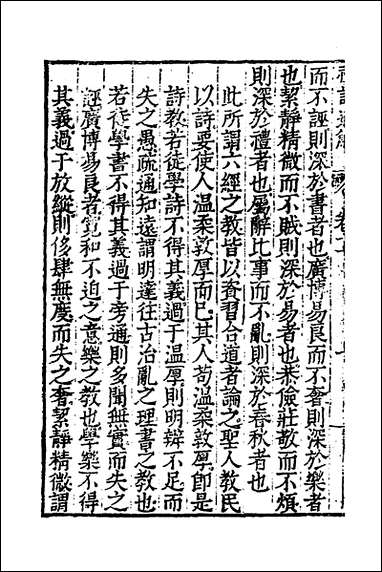 而不誣則深於書者也廣博易良而不奢則深於樂者
也絜靜精微而不賊則深於易者也恭儉莊敬而不煩
則深於禮者也屬辭比事而不亂則深於春秋者也
此所謂六經之教皆以資習合道者論之聖人教民
以詩要使人温柔敦厚而已其人苟温柔敦厚卽是
詩教若徒學詩不得其義過于温厚則明辨不足而
失之愚疏通知遠謂明達往古治亂之理書之教也
若徒學書不得其義過于旁通則多聞無實而失之
誣廣博易良者寛和不迫之意樂之教也學樂不得
其義過于放縱則侈肆無度而失之奢絜靜精微謂